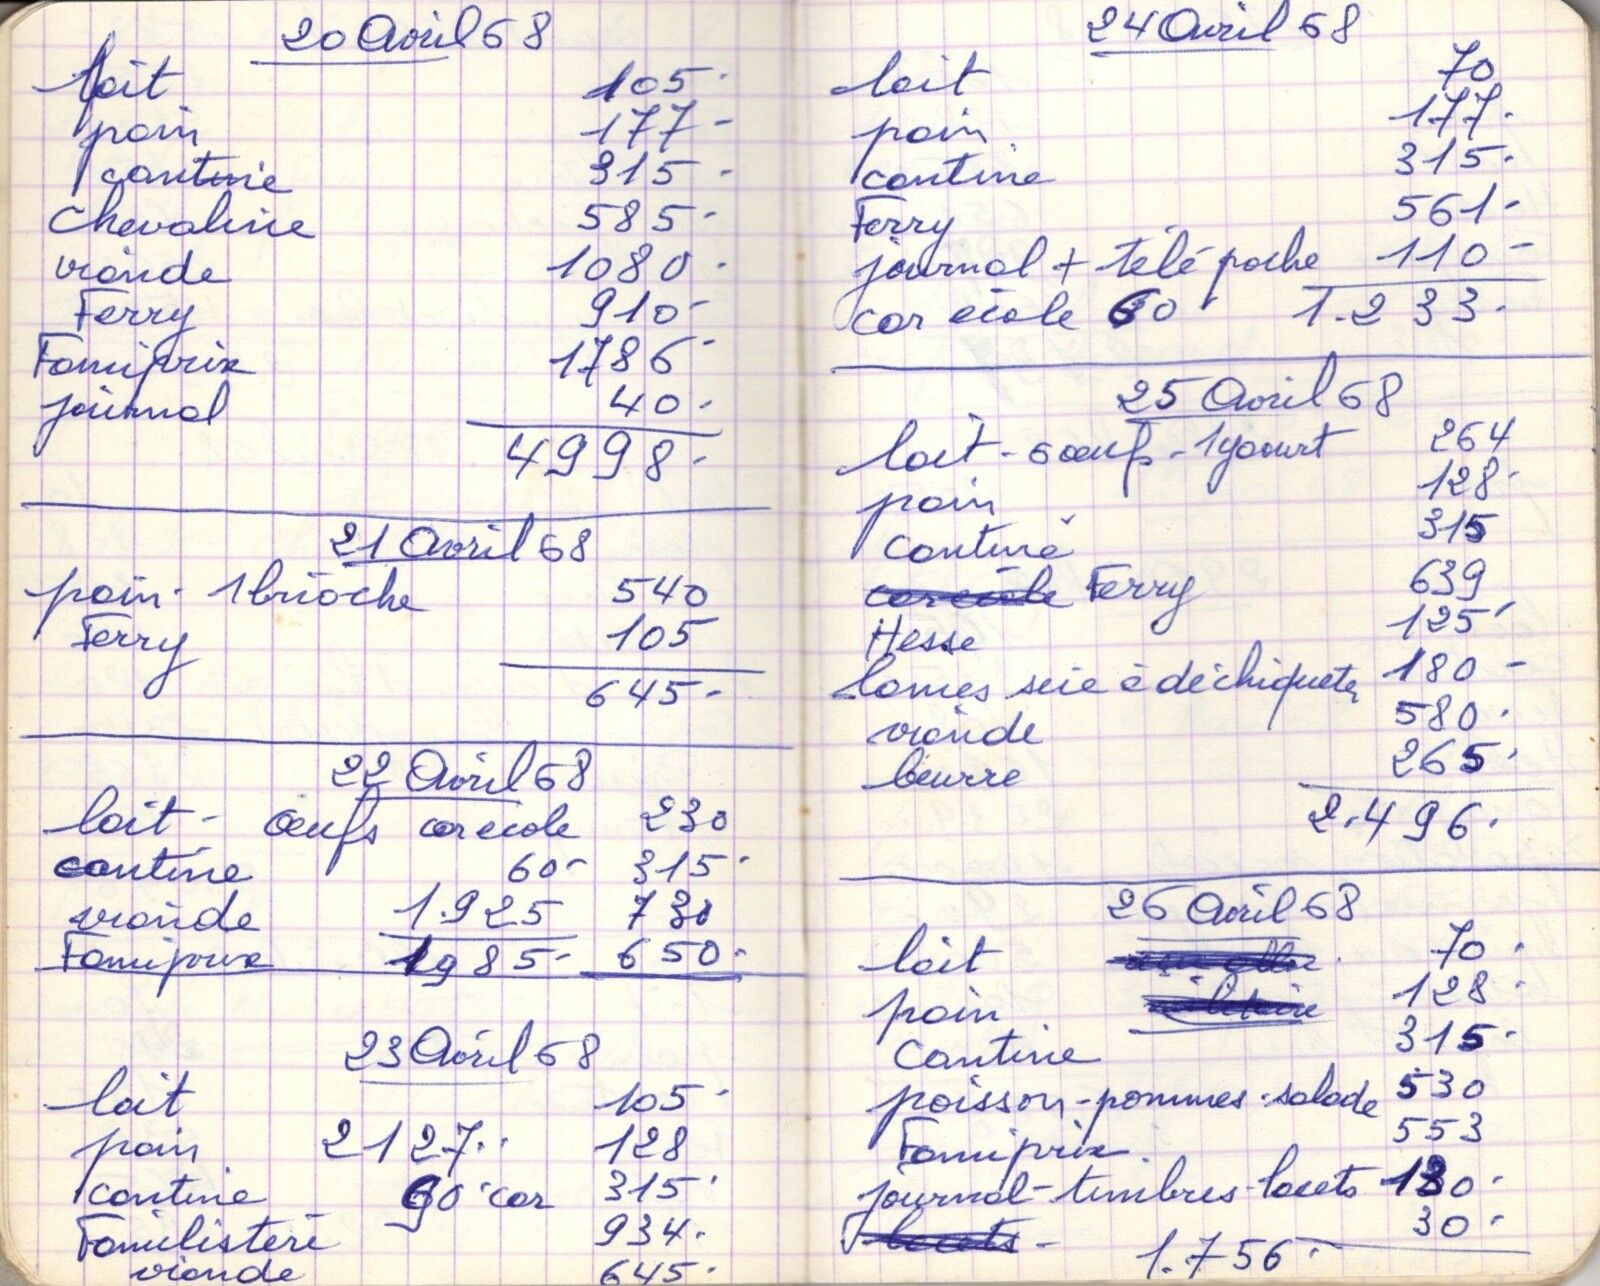 20 Avril 68
lait 105.
pain 177-
cantine 315-
Chevaline 585.
viande 1080.
Ferry 910-
Famiprix 1786-
journal 40.
4998.
21 Avril 68
pain. 1 brioche 540
Ferry 105
645.
22 Avril 68
lait - œufs car école 230
cantine 60- 315.
viande 1.925 730
Famiprix 1985- 650.
23 Avril 68
lait 105.
pain 2127.. 128
cantine 60. car 315.
Familistère 934.
viande 645.
24 Avril 68
lait 70
pain 177.
cantine 315.
Ferry 561-
journal + télé poche 110-
car école 60 1.233.
25 Avril 68
lait - 6 œufs - 1 yaourt 264
pain 128.
cantine 315
car école Ferry 639
Hesse 125.
lames scie à déchiqueter 180 -
viande 580.
beurre 265.
2.496.
26 Avril 68
lait 70.
pain 128.
Cantine 315.
poisson - pommes - salade 530
Famiprix 553
journal - timbres - lacets 130.
lacets - 30.
1.756.